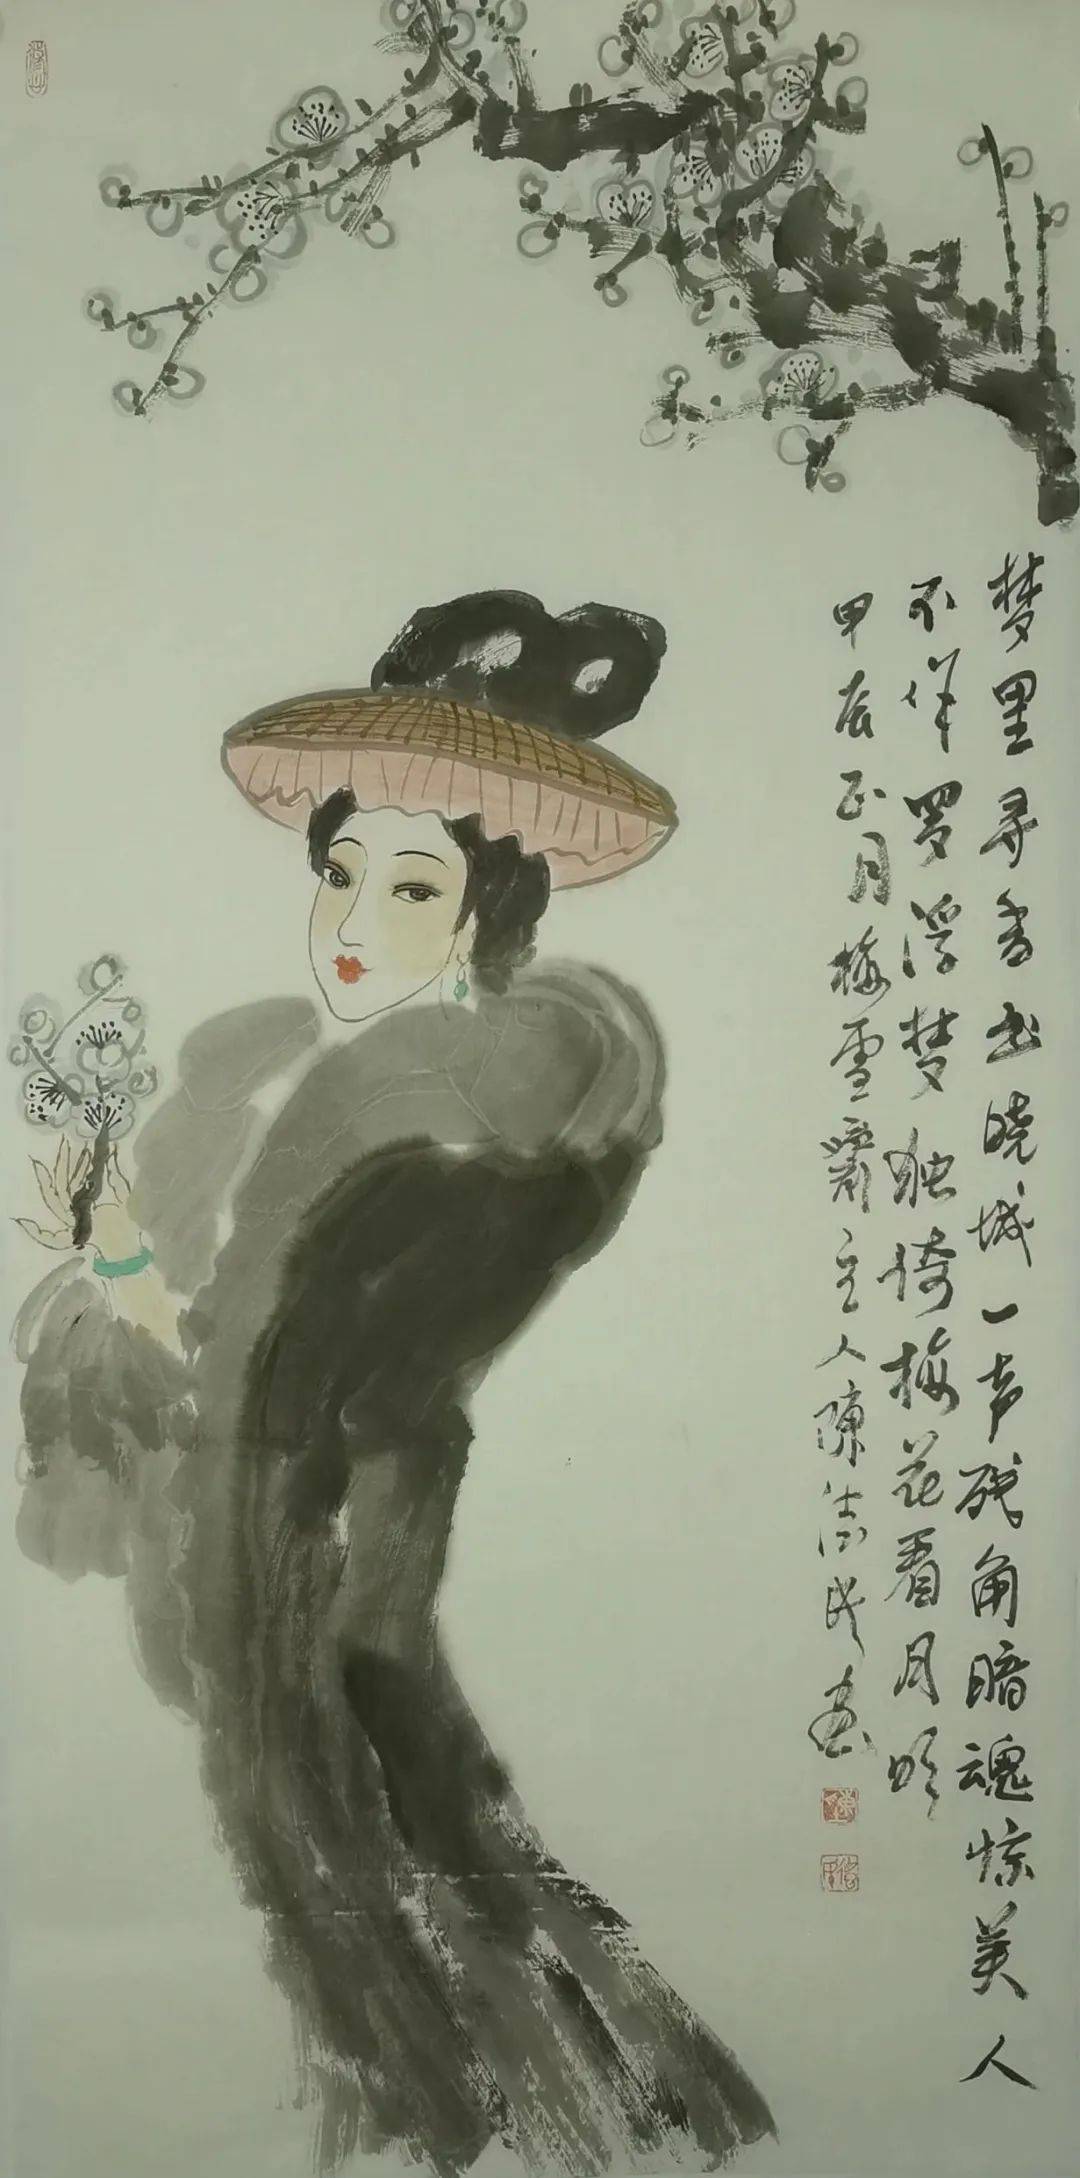 梦里寻香出晓城一声残角暗魂惊美人
不伴罗浮梦独倚梅花看月明
甲辰正月梅雪斋主人陳法民畫